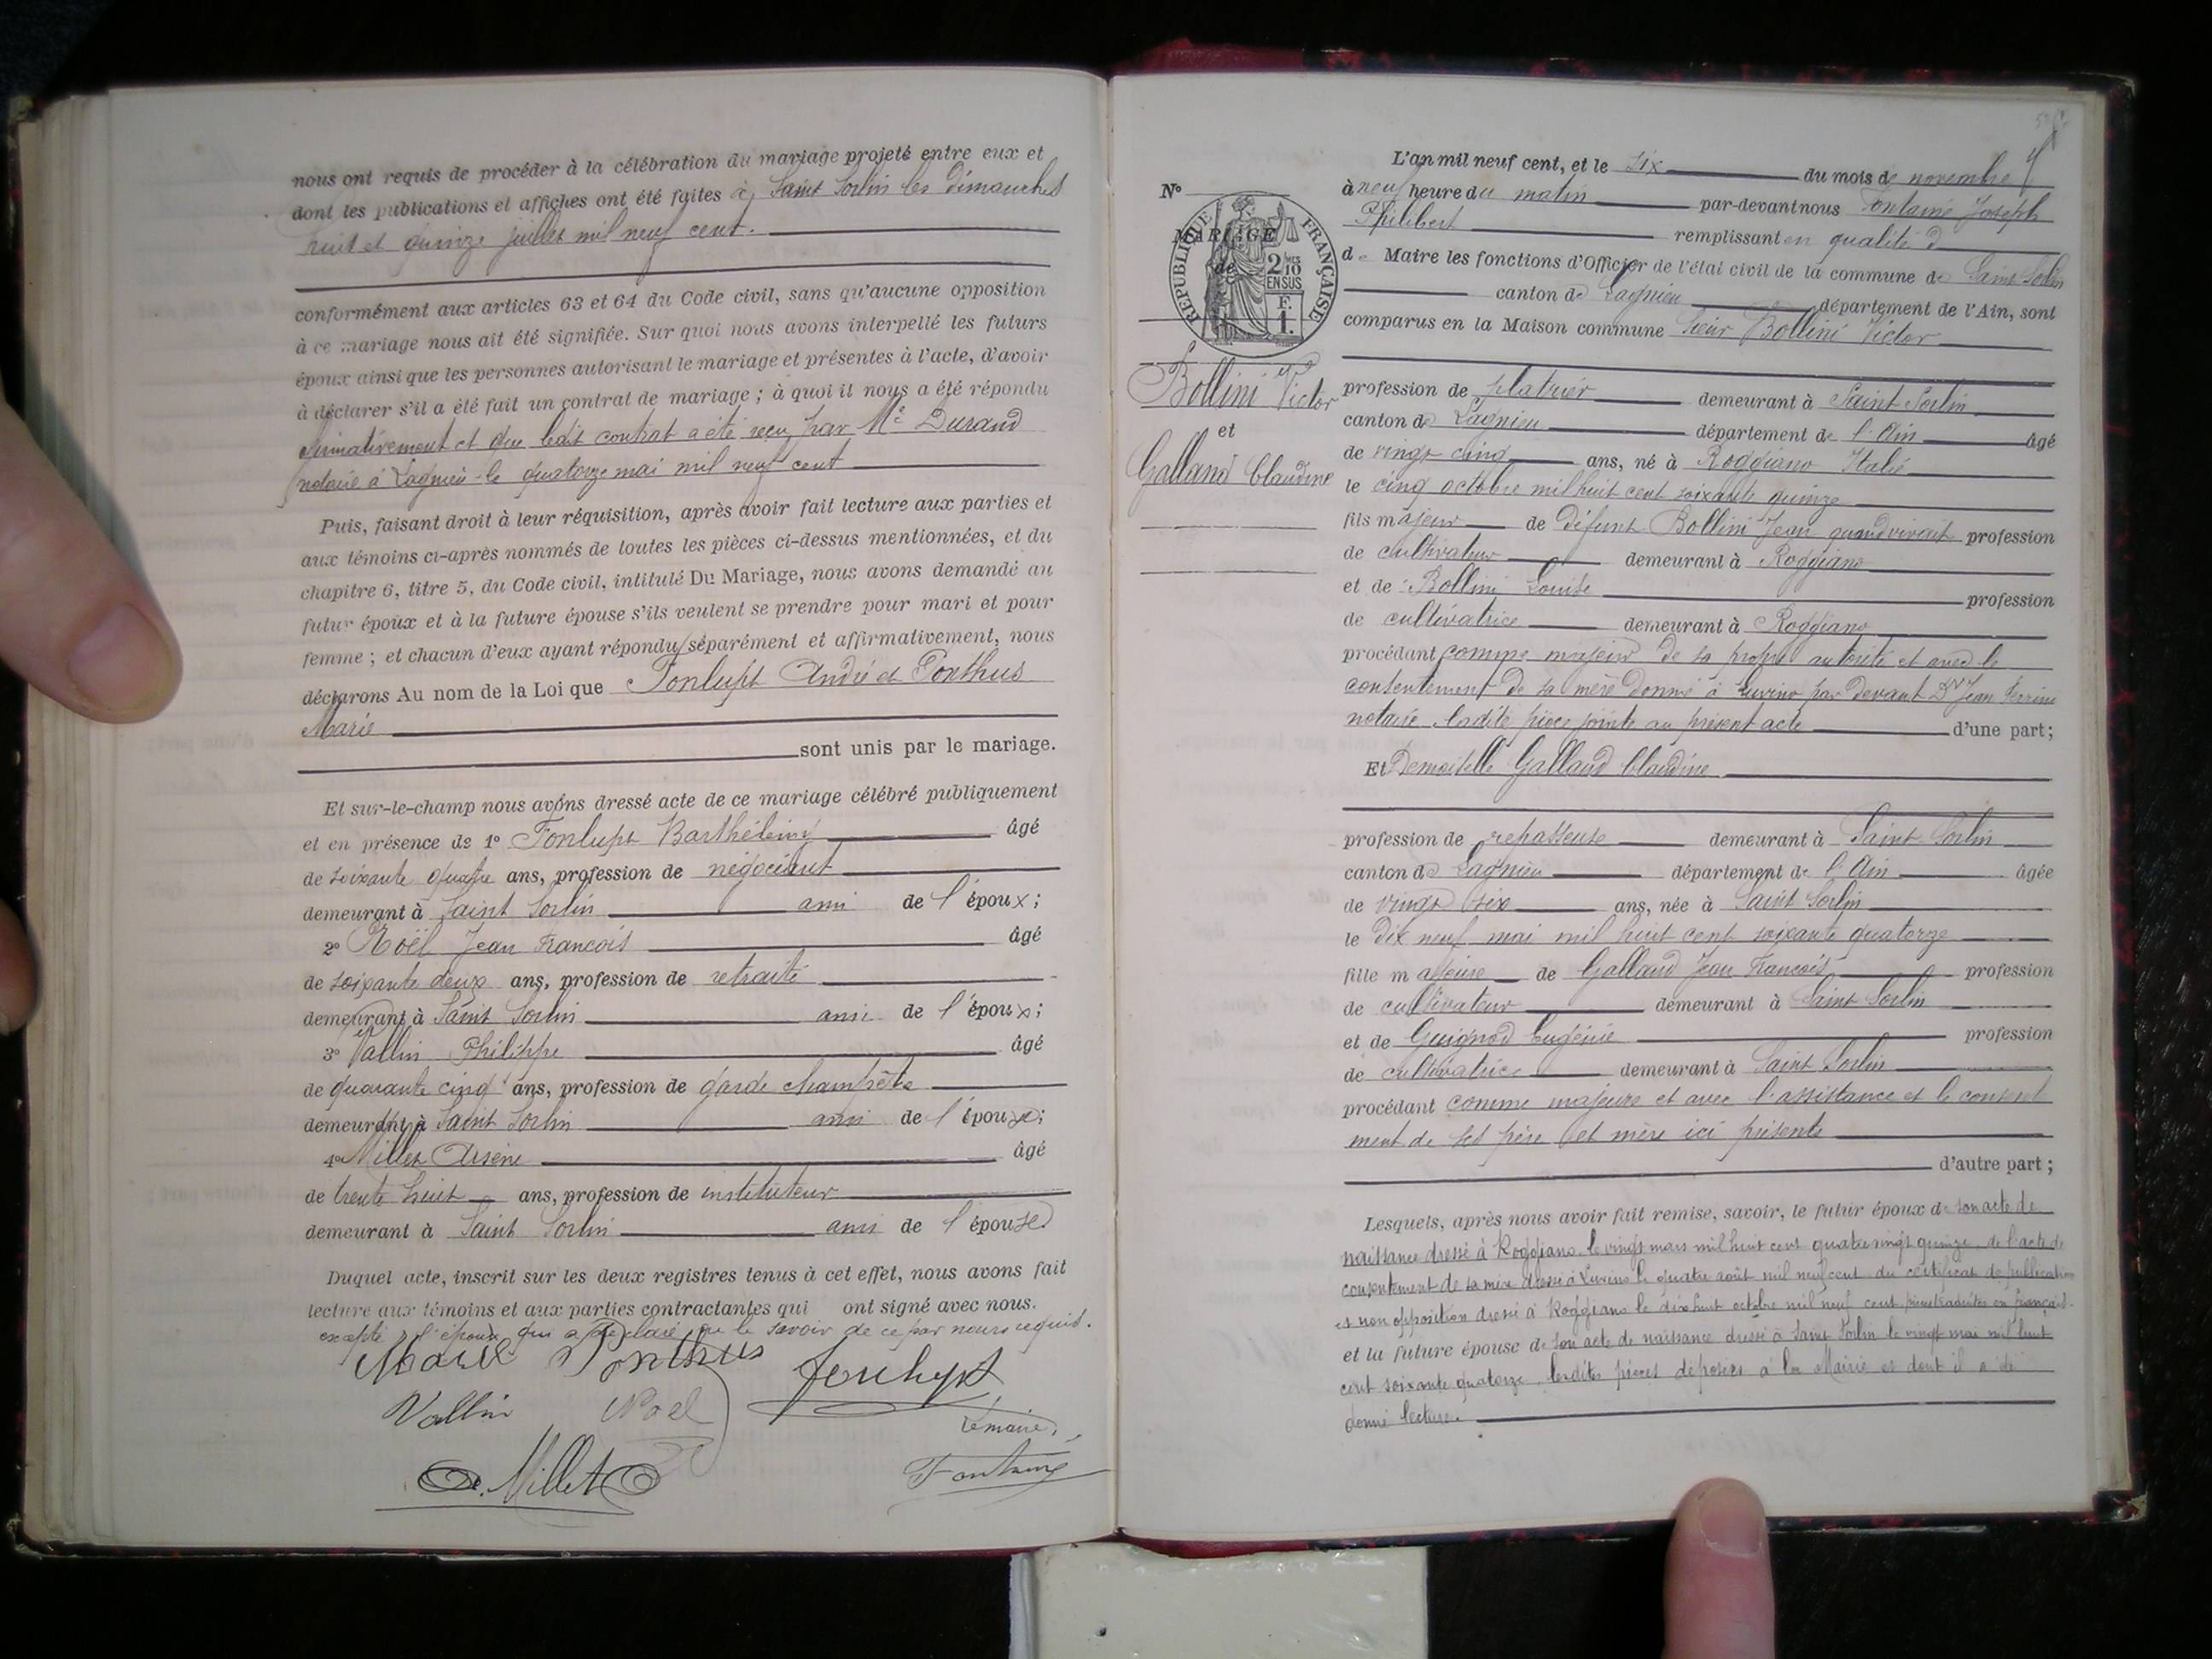 nous ont requis de procéder à la célébration du mariage projeté entre eux et
dont les publications et affiches ont été faites à Saint Sorlin les dimanches
huit et quinze juillet mil neuf cent.
conformément aux articles 63 et 64 du Code civil, sans qu'aucune opposition
à ce mariage nous ait été signifiée. Sur quoi nous avons interpellé les futurs
époux ainsi que les personnes autorisant le mariage et présentes à l'acte, d'avoir
à déclarer s'il a été fait un contrat de mariage ; à quoi il nous a été répondu
affirmativement et que ledit contrat a été reçu par Me Durand
notaire à Lagnieu le quatorze mai mil neuf cent
Puis, faisant droit à leur réquisition, après avoir fait lecture aux parties et
aux témoins ci-après nommés de toutes les pièces ci-dessus mentionnées, et du
chapitre 6, titre 5, du Code civil, intitulé Du Mariage, nous avons demandé au
futur époux et à la future épouse s'ils veulent se prendre pour mari et pour
femme ; et chacun d'eux ayant répondu séparément et affirmativement, nous
déclarons Au nom de la Loi que Fonlupt André et Ponthus
Marie
sont unis par le mariage.
Et sur-le-champ nous avons dressé acte de ce mariage célébré publiquement
et en présence de 1° Fonlupt Barthélémy âgé
de soixante quatre ans, profession de négociant
demeurant à Saint Sorlin ami de l'époux ;
2° Noël Jean François âgé
de soixante deux ans, profession de retraité
demeurant à Saint Sorlin ami de l'époux ;
3° Vallin Philippe âgé
de quarante cinq ans, profession de garde champêtre
demeurant à Saint Sorlin ami de l'épouse ;
4° Millet Arsène âgé
de trente huit ans, profession de instituteur
demeurant à Saint Sorlin ami de l'épouse
Duquel acte, inscrit sur les deux registres tenus à cet effet, nous avons fait
lecture aux témoins et aux parties contractantes qui ont signé avec nous.
excepté l'époux qui a déclaré ne le savoir de ce par nous requis.
Marie Ponthus Fonlupt
Vallin Noel
Le maire,
A. Millet Fontaine
N°
MARIAGE
de
RÉPUBLIQUE FRANÇAISE
2/10 EN SUS
F. 1.
Bollini Victor
et
Galland Claudine
L'an mil neuf cent, et le six du mois de novembre
à neuf heure du matin par-devant nous Fontaine Joseph
Philibert remplissant en qualité d
de Maire les fonctions d'Officier de l'état civil de la commune de Saint Sorlin
canton de Lagnieu département de l'Ain, sont
comparus en la Maison commune Sieur Bollini Victor
profession de platrier demeurant à Saint Sorlin
canton de Lagnieu département de l'Ain âgé
de vingt cinq ans, né à Roggiano Italie
le cinq octobre mil huit cent soixante quinze
fils majeur de défunt Bollini Jean quand vivait profession
de cultivateur demeurant à Roggiano
et de Bollini Louise profession
de cultivatrice demeurant à Roggiano
procédant comme majeur de sa propre autorité et avec le
consentement de sa mère donné à Luvino par devant Dr Jean Perrini
notaire ladite pièce jointe au présent acte d'une part ;
Et Demoiselle Galland Claudine
profession de repasseuse demeurant à Saint Sorlin
canton de Lagnieu département de l'Ain âgée
de vingt six ans, née à Saint Sorlin
le dix neuf mai mil huit cent soixante quatorze
fille majeure de Galland Jean François profession
de cultivateur demeurant à Saint Sorlin
et de Guignod Eugénie profession
de cultivatrice demeurant à Saint Sorlin
procédant comme majeure et avec l'assistance et le consente
ment de ses père et mère ici présents
d'autre part ;
Lesquels, après nous avoir fait remise, savoir, le futur époux de son acte de
naissance dressé à Roggiano le vingt mars mil huit cent quatre vingt quinze, de l'acte de
consentement de sa mère dressé à Luvino le quatre août mil neuf cent du certificat de publication
et non opposition dressé à Roggiano le dix huit octobre mil neuf cent, pièces traduites en français.
et la future épouse de son acte de naissance dressé à Saint Sorlin le vingt mai mil huit
cent soixante quatorze, lesdites pièces déposées à la Mairie et dont il a été
donné lecture.